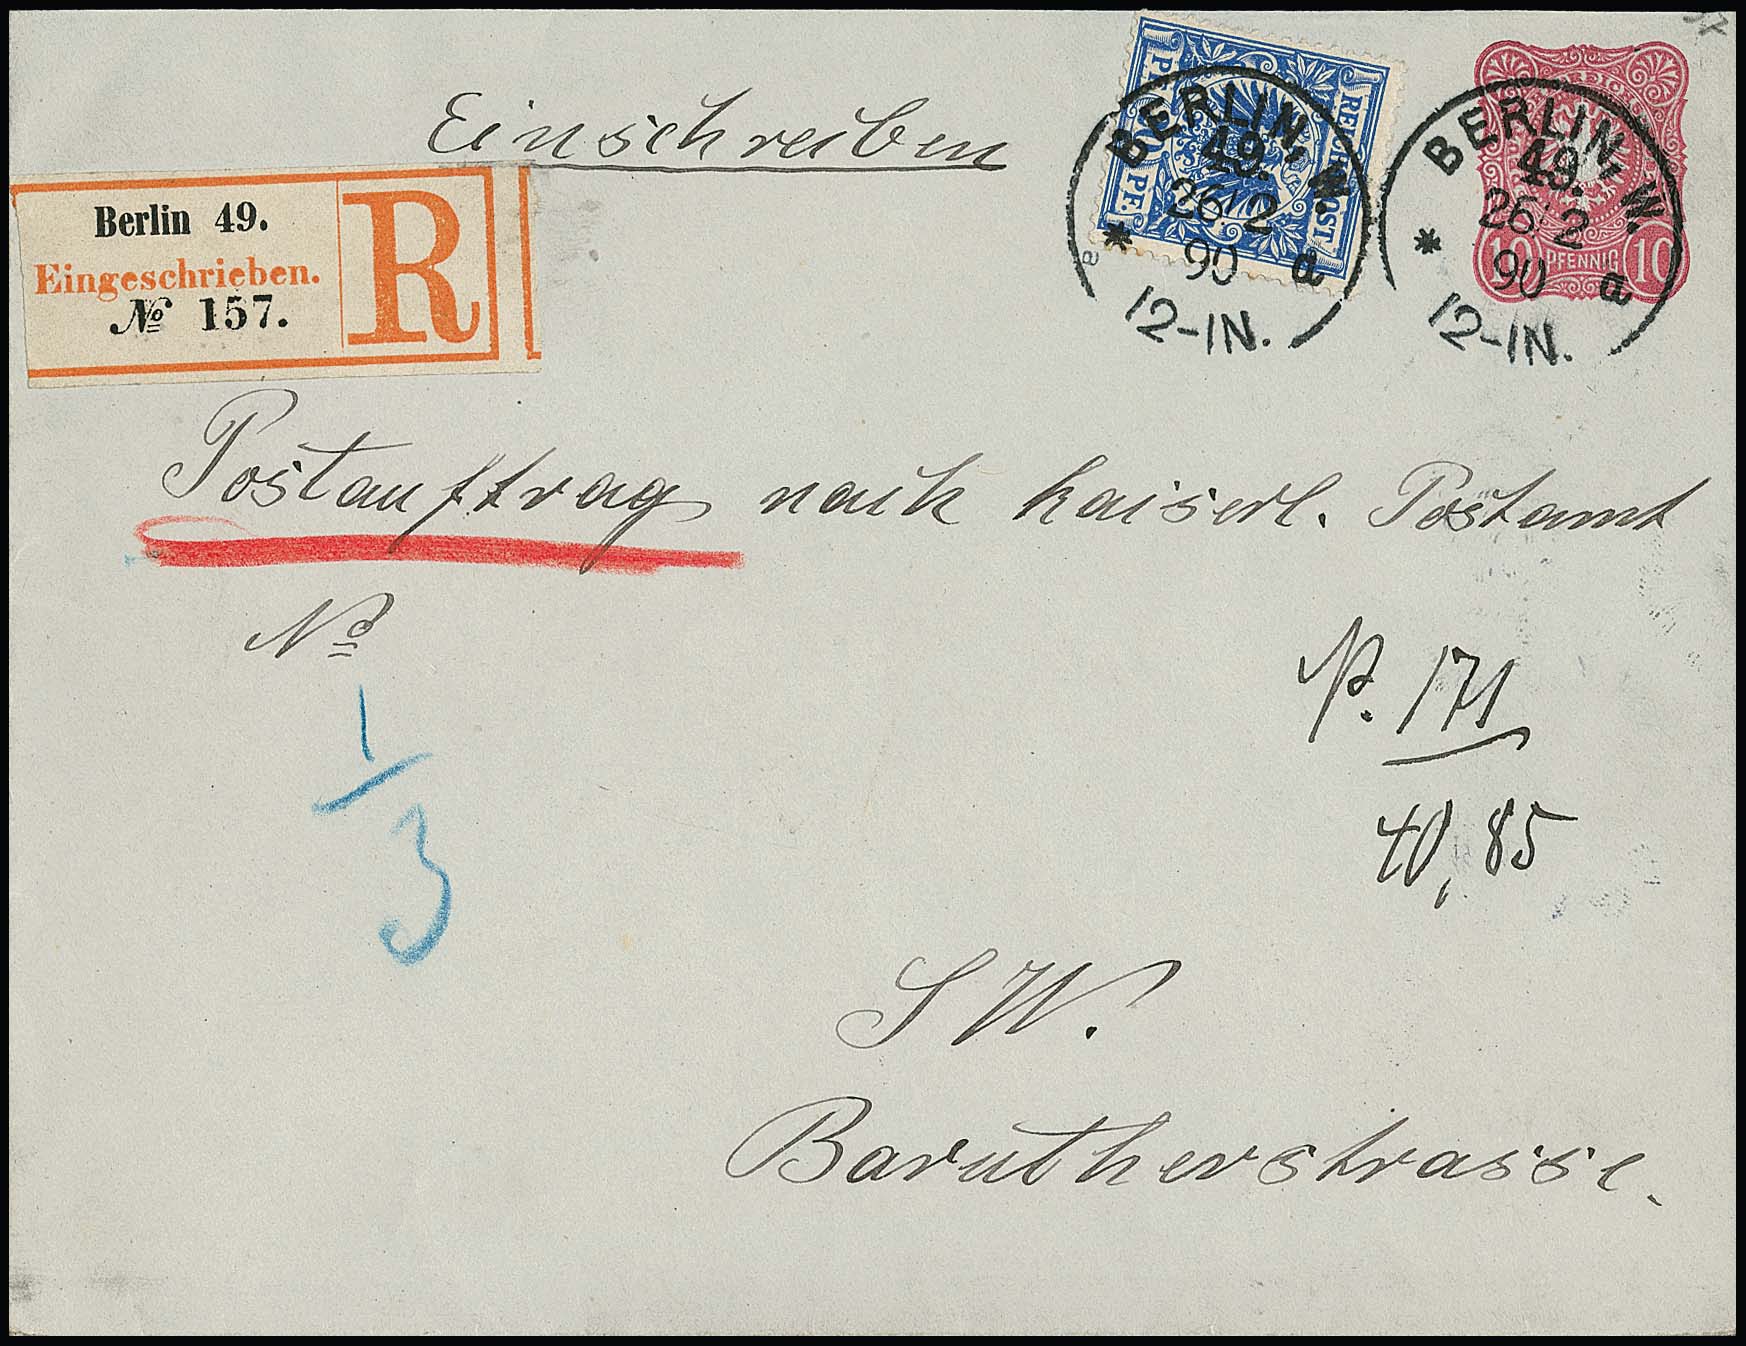 Einschreiben
Berlin 49.
Eingeschrieben.
№ 157.
R
REICHSPOST
20 PF.
BERLIN, W.
49.
26 2
90 a
12-1N.
REICHSPOST
BERLIN, W.
49.
26 2
90 a
12-1N.
10 PFENNIG 10
Postauftrag nach Kaiserl. Postamt
№
1/3
P. 171
40,85
SW.
Barutherstrasse.